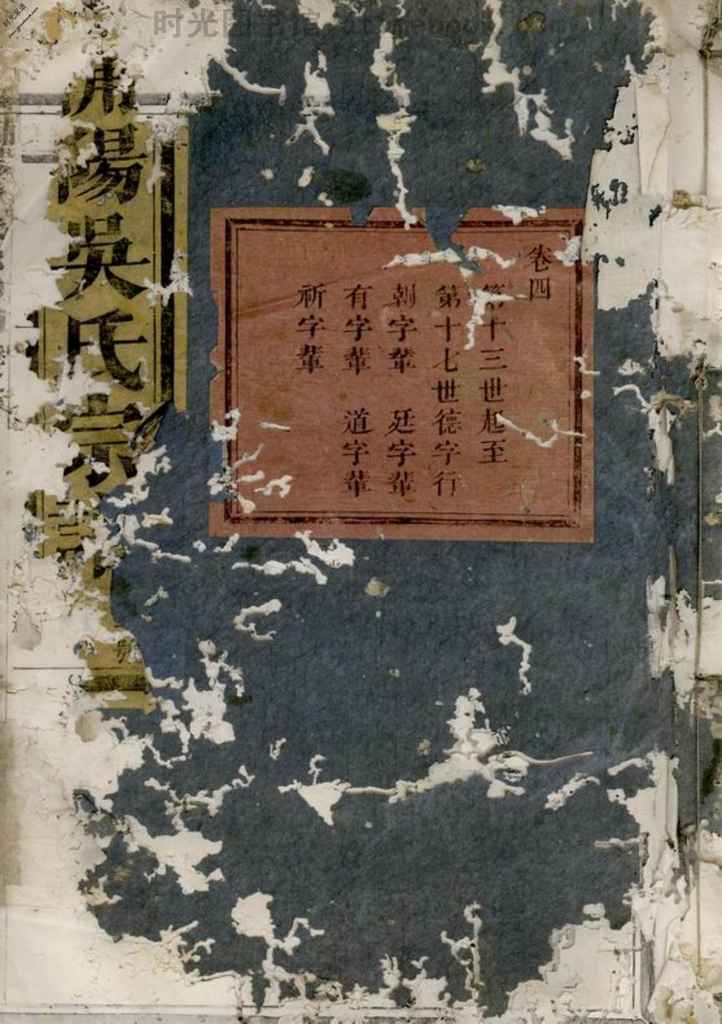 卷四
第十三世起至
第十七世德字行
朝字輩 廷字輩
有字輩 道字輩
祈字輩
陽吳氏宗
時光